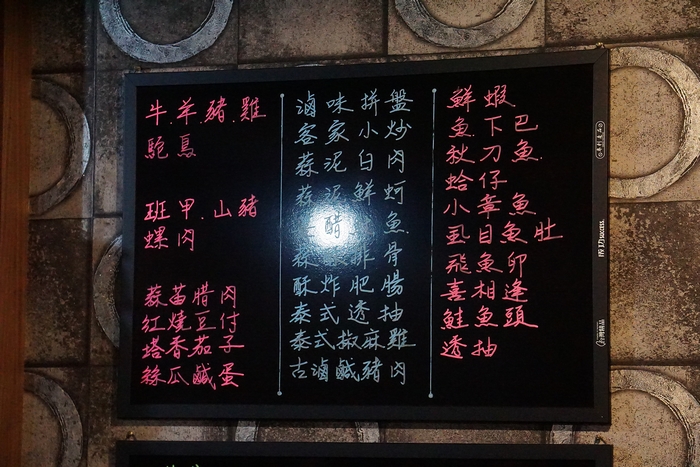 牛.羊.豬.雞
鴕鳥
班甲.山豬
螺肉
蒜苗腊肉
紅燒豆付
塔香茄子
絲瓜鹹蛋
滷味拼盤
客家小炒
蒜泥白肉
蒜泥鮮蚵
醋魚
排骨
酥炸肥腸
泰式透抽
泰式椒麻雞
古滷鹹豬肉
鮮蝦
魚下巴
秋刀魚.
蛤仔
小章魚
虱目魚肚
飛魚卵
喜相逢
鮭魚頭
透抽